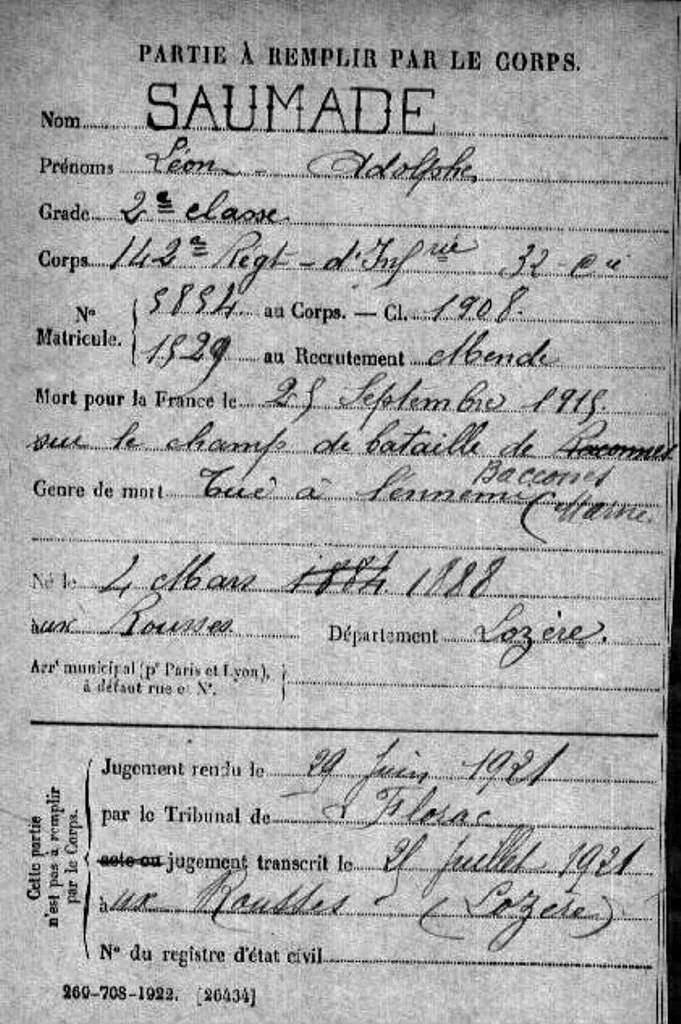 PARTIE À REMPLIR PAR LE CORPS.
Nom SAUMADE
Prénoms Léon - Adolphe
Grade 2e classe
Corps 142e Régt - d'Infrie 32 - Cie
No Matricule. 5854 au Corps. — Cl. 1908.
1529 au Recrutement Mende
Mort pour la France le 25 Septembre 1915.
sur le champ de bataille de Baconnes
Baccones
Genre de mort Tué à l'ennemi (Marne.
Né le 4 Mars 1884 1888
aux Rousses Département Lozère.
Arrt municipal (pr Paris et Lyon),
à défaut rue et No.
Cette partie n'est pas à remplir par le Corps.
Jugement rendu le 29 Juin 1921
par le Tribunal de Florac
acte ou jugement transcrit le 25 Juillet 1921
aux Rousses - (Lozère)
No du registre d'état civil
269-708-1922. [26434]